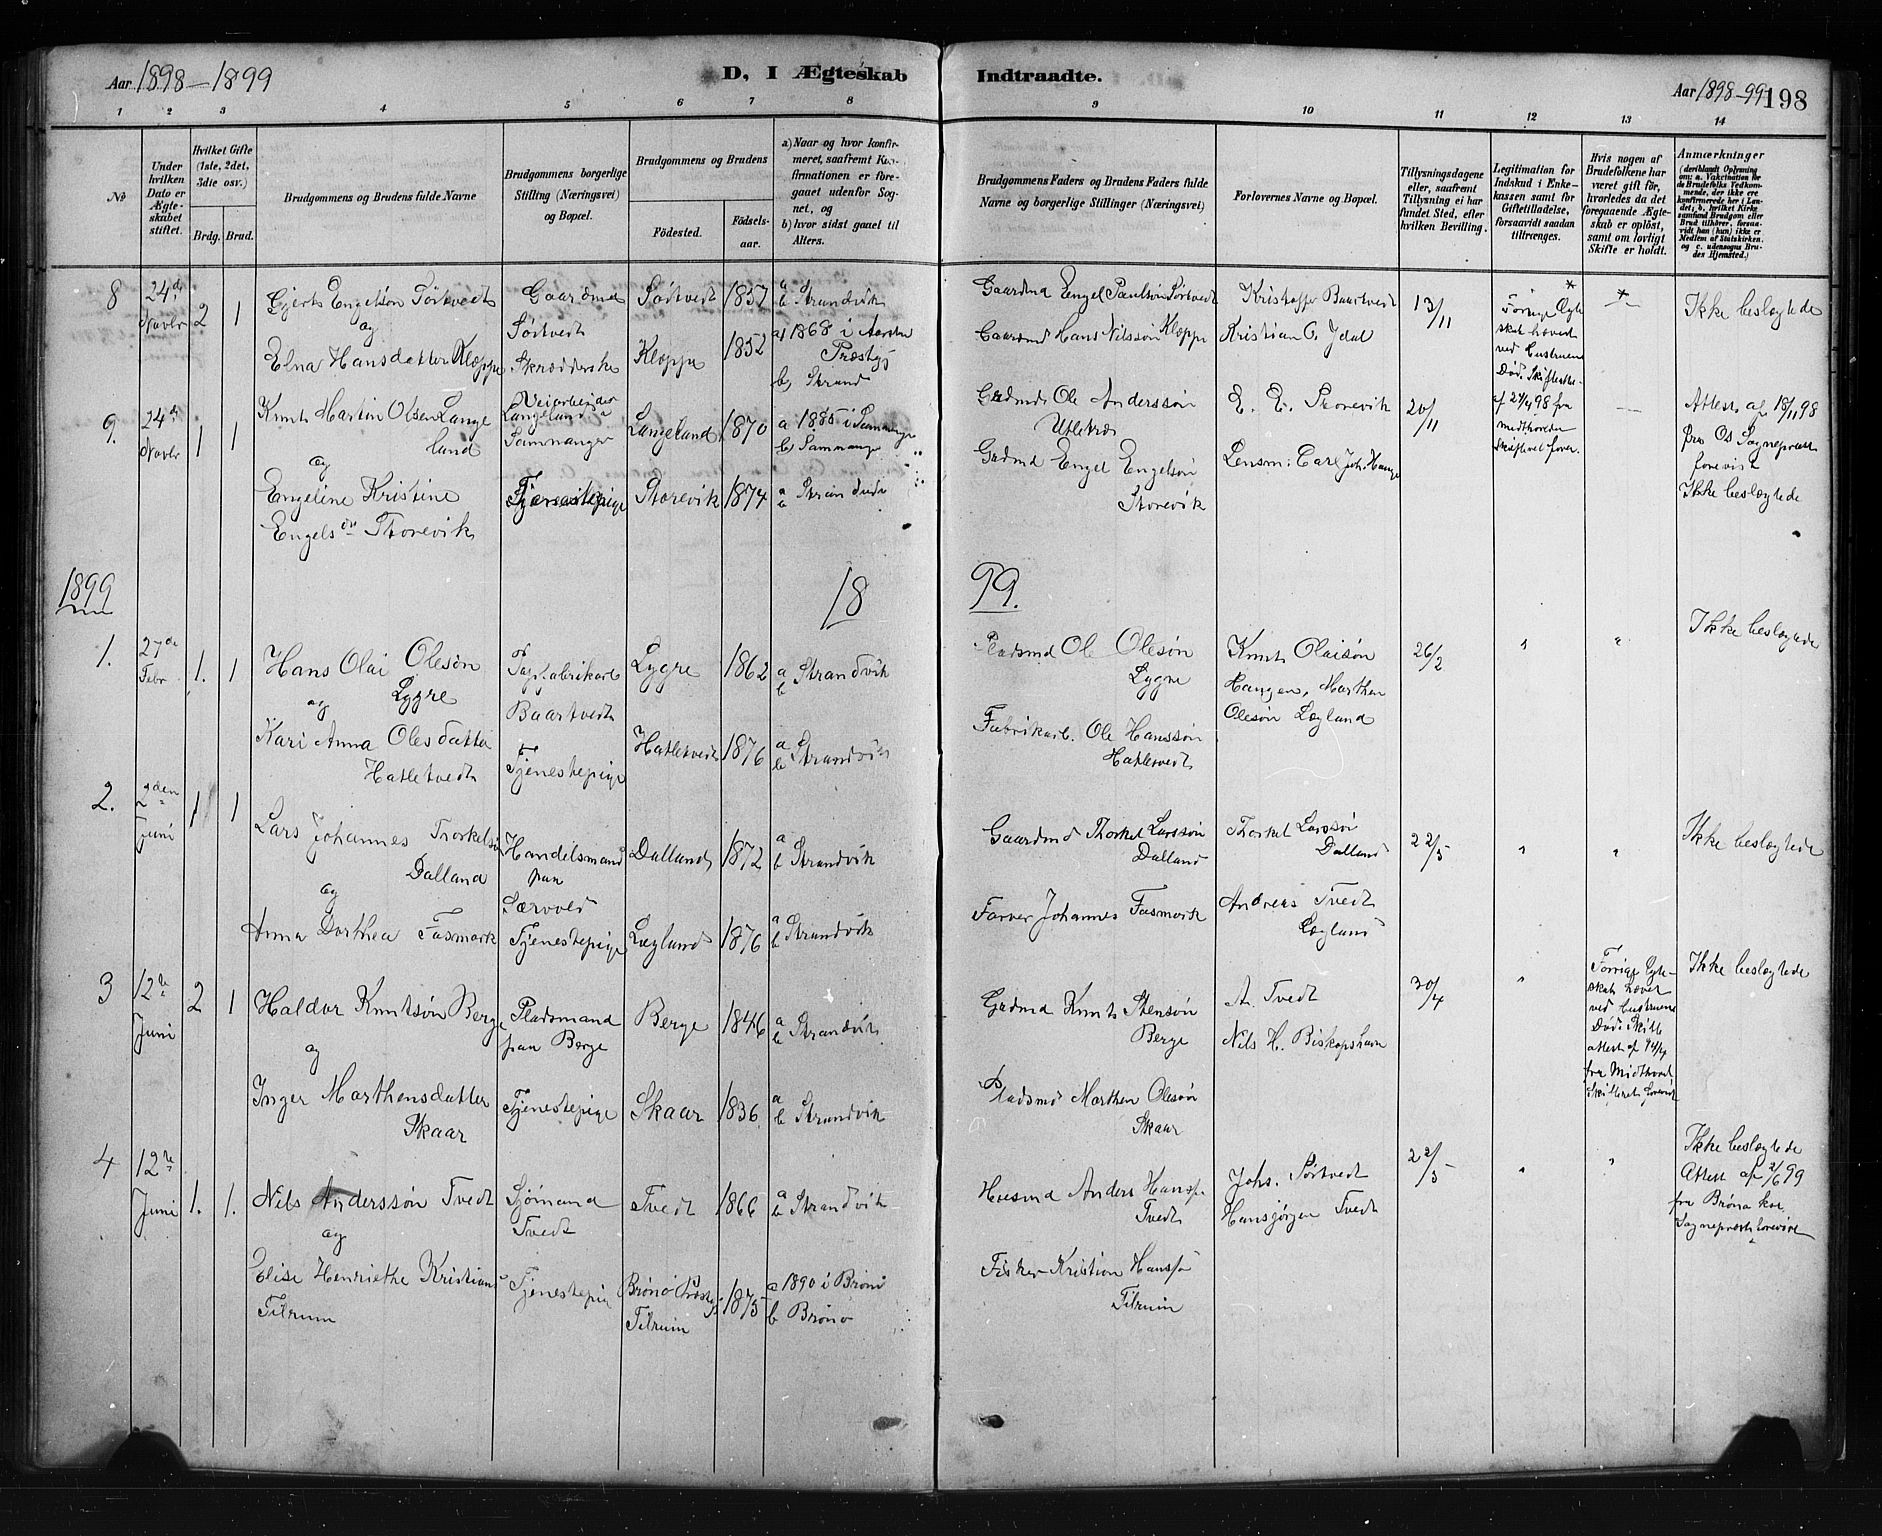 Aar 1898-1899
D, I Ægteskab
Indtraadte.
Aar 1898-99 198
1 2 3 4 5 6 7 8 9 10 11 12 13 14
No
Under hvilken Dato er Ægteskabet stiftet.
Hvilket Gifte (1ste, 2det, 3die osv.)
Brdg. Brud.
Brudgommens og Brudens fulde Navne
Brudgommens borgerlige Stilling (Næringsvei) og Bopæl.
Brudgommens og Brudens
Fødested.
Fødselsaar.
a) Naar og hvor konfirmeret, saafremt Konfirmationen er foregaaet udenfor Sognet, og
b) hvor sidst gaaet til Alters.
Brudgommens Faders og Brudens Faders fulde Navne og borgerlige Stillinger (Næringsvei)
Forlovernes Navne og Bopæl.
Tillysningsdagene eller, saafremt Tillysning ei har fundet Sted, efter hvilken Bevilling.
Legitimation for Indskud i Enkekassen samt for Giftetilladelse, forsaavidt saadan tiltrænges.
Hvis nogen af Brudefolkene har været gift før, hvorledes da det foregaaende Ægteskab er opløst, samt om lovligt Skifte er holdt.
Anmærkninger
8 24de Novbr 2 1
Gjert Engelsøn Sørtvedt
og
Elna Hansdatter Kleppe
Gaardmd
Sørtvedt
Skrædderske
Sørtvedt 1857
Kleppe 1852
a b Strandvik
a) 1868 i
b) Strand
Gaardmd Engel Paulsøn Sørtvedt
Gaardmd Hans Nilssøn Kleppe
Kristoffer Baartvedt
Kristian O. Ydal
13/11
Forrige Egteskab hævet ved Hustruens Død.
Ikke beslægtede
9. 24de Novbr 1 1
Knut Martin Olsen Langeland
og
Engeline Kristine
Engelsdtr Storevik
Veiarbeider
Langeland
Samnanger
Tjenestepige
Langeland 1870
Storevik 1874
a 1885 i Samnanger
b) Samnanger
a b Strandvik
Grdmd Ole Anderssøn
Grdmd Engel Engelsøn
Storevik
E. E. Storevik
Lensm: Carl Joh. Hauge
20/11
Attest af 18/11 98
fra Os Sognepræst
forevist
Ikke beslægtede
1899 18 99.
1. 27de Febr 1. 1
Hans Olai Olesøn
og Lygre
Kari Anna Olesdatter
Hatletvedt
Baartvedt
Tjenestepige
Lygre 1862
Hatletvedt 1876
a b Strandvik
a b Strandvik
Pladsmd Ole Olesøn
Lygre
Fabrikarb. Ole Hanssøn
Hatletvedt
Knut Olaisøn
Haugen, Marthen
Olesøn Lægland
26/2
" "
Ikke beslægtede
2. 2den Juni 1 1
Lars Johannes Thorkelsøn
Dalland
og
Anna Dorthea Fasmerk
Handelsmand
paa
Særvold
Tjenestepige
Dalland 1872
Lægland 1876
a b Strandvik
a b Strandvik
Gaardmd Thorkel Larssøn
Dalland
Farver Johannes Fasmerk
Thorkel Larssøn
Dalland
Andreas Tvedt
Lægland
22/5
" "
Ikke beslægtede
3 12te Juni 2 1
Haldor Knutsøn Berge
og
Inger Marthensdatter
Skaar
Pladsmand
paa Berge
Tjenestepige
Berge 1846
Skaar 1836
a b Strandvik
a b Strandvik
Grdmd Knut Stensøn
Berge
Pladsmd Marthen Olesøn
Skaar
A. Tvedt
Nils H. Biskopshavn
30/4
"
Forrige Egteskab hævet ved Hustruens Død. Skifteattest af fra Midthordl. Skifteret forevist
Ikke beslægtede
4 12te Juni 1. 1.
Nils Anderssøn Tvedt
og
Elise Henriette Kristians
Tilrum
Sjømand
Tvedt
Tjenestepige
Tvedt 1866
Brønø Præstegj
Tilrum 1875
a b Strandvik
a 1890 i Brønø
b Brønø
Husmd Anders Hanss.
Tvedt
Fisker Kristian Hanss.
Tilrum
Johs. Sørtvedt
Hansjørgen Tvedt
22/5
" "
Ikke beslægtede
Attest af 2/6 99
fra Brønø
Sognepræst forevist